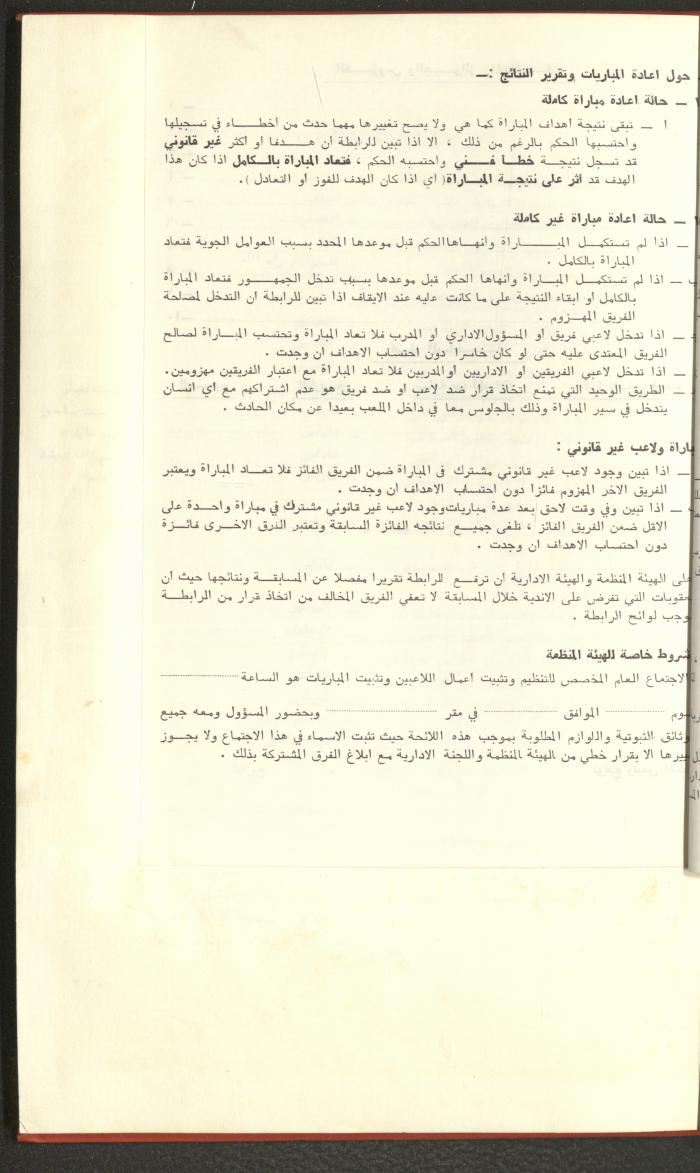 حول اعادة المباريات وتقرير النتائج :ـ
ـ حالة اعادة مباراة كاملة
ا ـ تبقى نتيجة اهداف المباراة كما هي ولا يصح تغييرها مهما حدث من أخطـاء في تسجيلها
واحتسبها الحكم بالرغم من ذلك ، الا اذا تبين للرابطة ان هـدفا او اكثر غير قانوني
قد تسجل نتيجـة خطـا فـني واحتسبه الحكم ، فتعاد المباراة بالـكامل اذا كان هذا
الهدف قد اثر على نتيجـة المبـاراة( اي اذا كان الهدف للفوز او التعادل ).
ـ حالة اعادة مباراة غير كاملة
ـ اذا لم تستكمـل المبــاراة وانهـاها الحكم قبل موعدها المحدد بسبب العوامل الجوية فتعاد
المباراة بالكامل .
ـ اذا لم تستكمـل المبـاراة وأنهاها الحكم قبل موعدها بسبب تدخل الجمهـور فتعاد المباراة
بالكامل أو ابقاء النتيجة على ما كانت عليه عند الايقاف اذا تبين للرابطة ان التدخل لمصلحة
الفريق المهـزوم .
ـ اذا تدخل لاعبي فريق او المسؤول الاداري او المدرب فلا تعاد المباراة وتحتسب المبـاراة لصالح
الفريق المعتدى عليه حتى لو كان خاسرا دون احتساب الاهداف ان وجدت .
ـ اذا تدخل لاعبي الفريقين او الاداريين او المدربين فلا تعاد المباراة مع اعتبار الفريقين مهزومين.
ـ الطريق الوحيد التي تمنع اتخاذ قرار ضد لاعب او ضد فريق هو عدم اشتراكهم مع اي انسان
يتدخل في سير المباراة وذلك بالجلوس معا في داخل الملعب بعيدا عن مكان الحادث .
باراة ولاعب غير قانوني :
ـ اذا تبين وجود لاعب غير قانوني مشترك فى المباراة ضمن الفريق الفائز فلا تعـاد المباراة ويعتبر
الفريق الاخر المهزوم فائزا دون احتساب الاهداف ان وجدت .
ـ اذا تبين وفي وقت لاحق بعد عدة مباريات وجود لاعب غير قانوني مشترك في مباراة واحـدة على
الاقل ضمن الفريق الفائز ، تلغى جميـع نتائجه الفائزة السابقة وتعتبر الفرق الاخـرى فائـزة
دون احتساب الاهداف ان وجدت .
على الهيئة المنظمة والهيئة الادارية ان ترفـع للرابطة تقريرا مفصلا عن المسابقـة ونتائجها حيث ان
عقوبات التي تفرض على الاندية خلال المسابقة لا تعفي الفريق المخالف من اتخاذ قرار من الرابطـة
وجب لوائح الرابطة .
شروط خاصة للهيئة المنظمة
الاجتماع العام المخصص للتنظيم وتثبيت اعمال اللاعبين وتثبيت المباريات هو الساعة ..............
وم .............. الموافق .............. في مقر .............. وبحضور المسؤول ومعه جميع
وثائق الثبوتية واللوازم المطلوبة بموجب هذه اللائحة حيث تثبت الاسماء في هذا الاجتماع ولا يجـوز
ييرها الا بقرار خطي من الهيئة المنظمة واللجنة الادارية مع ابلاغ الفرق المشتركة بذلك .